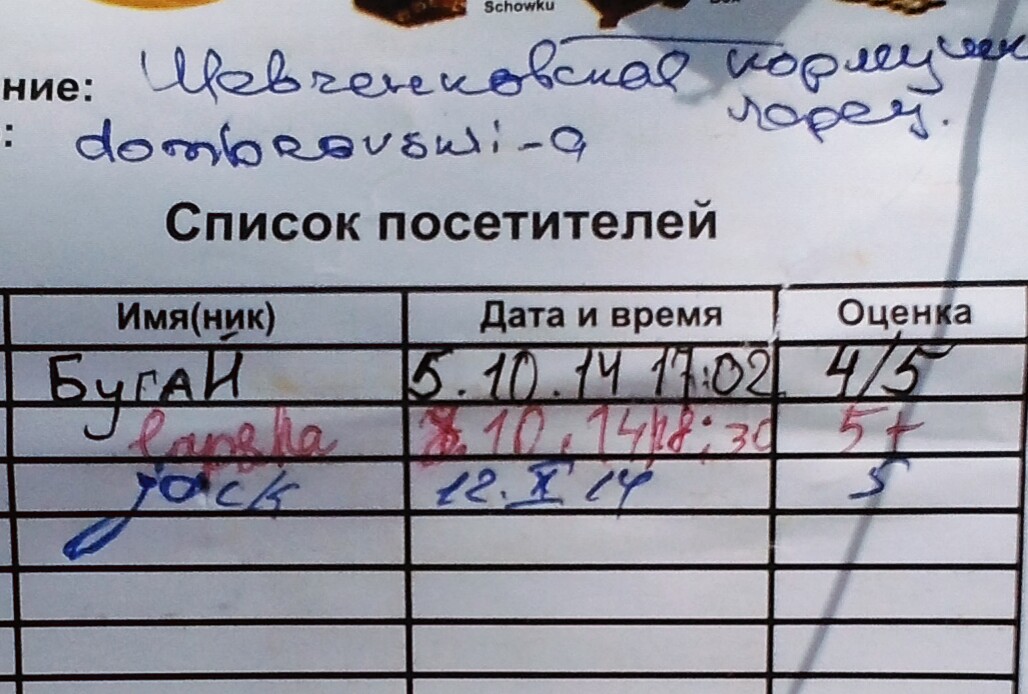 Schowku
ние: Шевченковская кормушк
ларец.
: dombrovski-a
Список посетителей
Имя(ник) Дата и время Оценка
Бугай 5.10.14 17:02 4/5
10.14 18:30 5+
jack 12.X 14 5